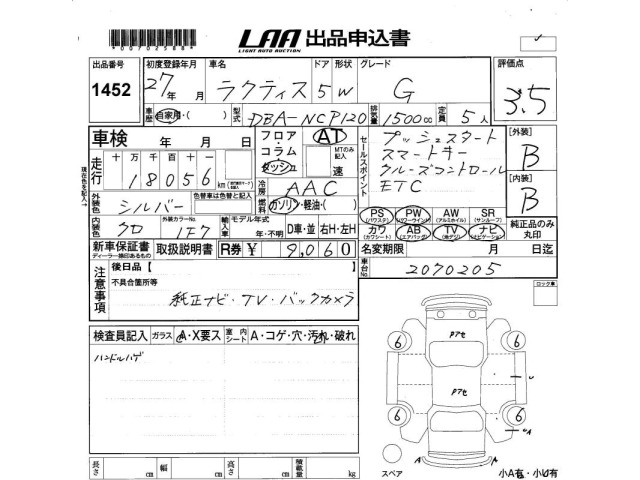 LAA 出品申込書
LIGHT AUTO AUCTION
*00702588*
出品番号 初度登録年月 車名 ドア 形状 グレード 評価点
1452 27年 月 ラクティス 5 W G 3.5
車歴 自家用・( ) 型式 DBA-NCP120 排気量 1500cc 定員 5人
車検 年 月 日
フロア・コラム・ダッシュ AT MTのみ記入 速
セールスポイント
プッシュスタート
スマートキー
クルーズコントロール
ETC
[外装] B
[内装] B
走行 十万千百十
18056 km
冷房 AAC
外装色 シルバー 色替車は色替と記入
燃料 ガソリン・軽油・( )
PS (パワステ) PW (パワーウインド) AW (アルミホイル) SR (サンルーフ)
カワ (カワシート) AB (エアバッグ) TV (地デジ) ナビ (ナビゲーション)
純正品のみ丸印
内装色 クロ 外装カラーNo. 1F7 輸入車 モデル年式 年・不明 D車・並 右H・左H
新車保証書 ディーラー捺印あるもの 取扱説明書 R券 ¥ 9,060 名変期限 月 日迄
注意事項 後日品【 】 車台No. 2070205
不具合箇所等
純正ナビ・TV・バックカメラ
ロック車
検査員記入 ガラス A・X要ス 室内シート A・コゲ・穴・汚れ・破れ
ハンドルハゲ
Pアセ
Pアセ
6 6
6 6
U
UA
A
スペア
小A有・小U有
長さ cm 幅 cm 高さ cm 積載量 kg